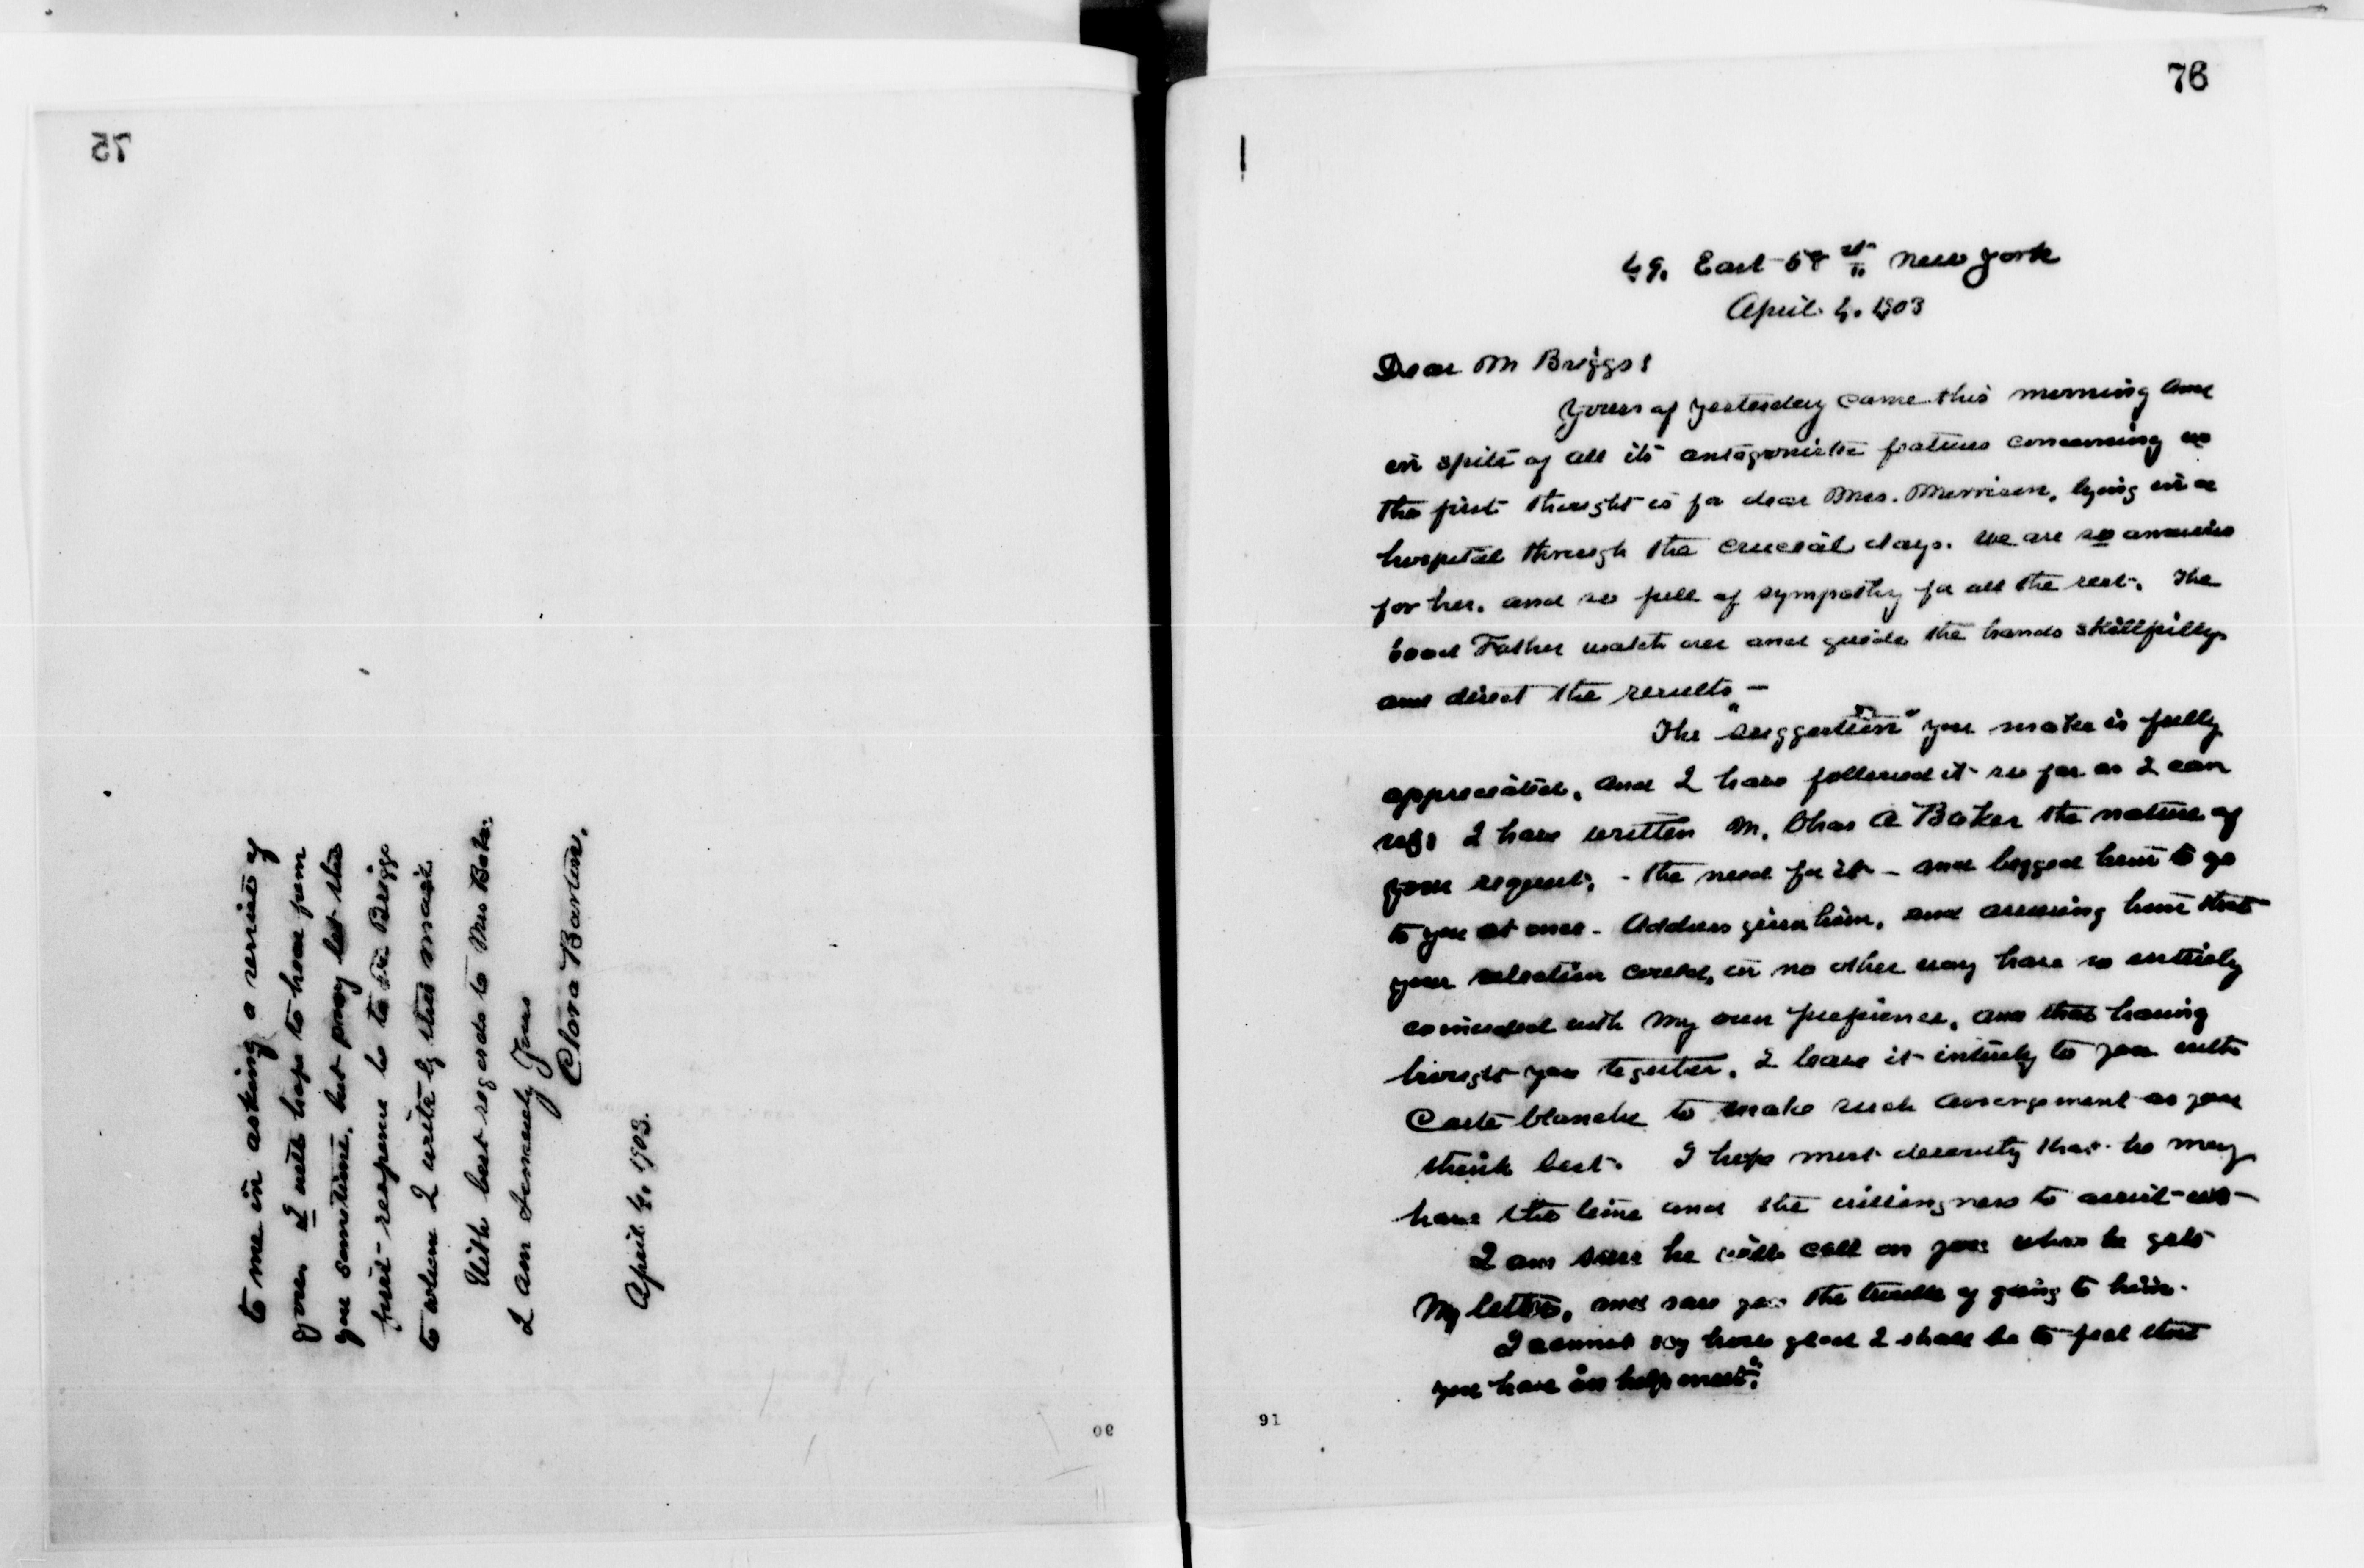 75
to me in asking a service of
you. I will hope to hear from
you sometime, but pray let the
first response be to Mr Briggs
to whom I write by this mail
With best regards to Mrs Baker
I am Sincerely Yours
Clara Barton.
April 4. 1903.
90
76
49. East 58th st New York
April. 4. 1903
Dear Mr Briggs:
Yours of yesterday came this morning and
in spite of all its antagonistic features concerning us
the first thought is for dear Mrs. Morrison, lying in a
hospital through the crucial days. We are so anxious
for her. and so full of sympathy for all the rest. The
Good Father watch over and guide the hands skillfully
and direct the results —
The "suggestion" you make is fully
appreciated, and I have followed it so far as I can
I have written Mr. Chas A Baker the nature of
your request, - the need for it - and begged him to go
to you at once - Address given him, and assuring him that
your selection could, in no other way have so entirely
coincided with my own preference, and that having
brought you together, I leave it entirely to you with
Carte blanche to make such arrangement as you
think best. I hope most devoutly that he may
have the time and the willingness to assist us -
I am sure he will call on you when he gets
my letter, and save you the trouble of going to him.
I cannot say how glad I shall be to feel that
you have an help meet".
91